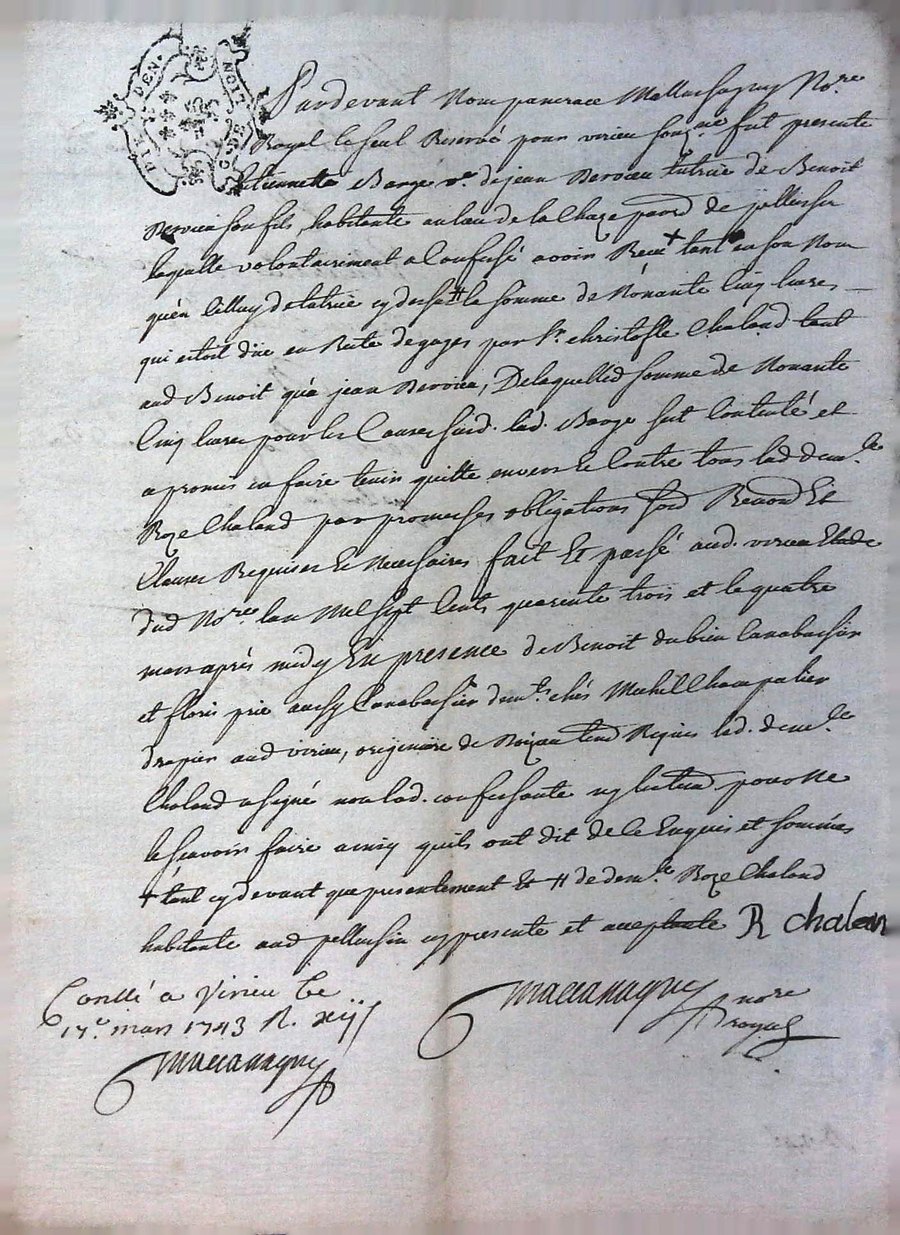 DEN. NOIT
Pardevant Nous pancrace Maccanagny No.re
Royal le seul Reservé pour virieu souz.né fut presente
Etiennette Barge v.e de jean Dervieu tutrice de Benoit
Dervieu son fils, habitante au lieu de la Chaze parr.d de pellussin
laquelle volontairement a Confessé avoir Receu + tant en son Nom
qu'en Celluy de tutrice cy dessus # la somme de Nonante Cinq livres
qui estoit düe en Reste de gages par S.r christofle Chaland tant
aud Benoit qu'a jean Dervieu, De laquelle d somme de Nonante
Cinq livres pour les Causes susd. lad. Barge s'est Contenté et
a promis en faire tenir quitte envers et Contre tous lad dem.lle
Roze Chaland par promesses obligations Renond Et
Clauses Requises Et Necessaires fait Et passé aud. virieu Etude
dud No.re lan Mil sept Cents quarente trois et le quatre
mars après midy En presence de Benoit dubien Canabassier
et floris prie aussy Canabassier dem.ts chés Michel Champalier
drapier aud virieu, originaire de temd Requis lad. dem.lle
Chaland a signé non lad. confessante ny led temd pour Ne
le scavoir faire ainsy quils ont dit de Ce Enquis et sommés
+ tant cy devant que presentement Et # de dem.lle Roze Chaland
habitante aud pellussin cy presente et acceptante R chalean
Conllé a Virieu Le
17.e mars 1743 R. xijs
Maccanagny
Maccanagny nore
royal